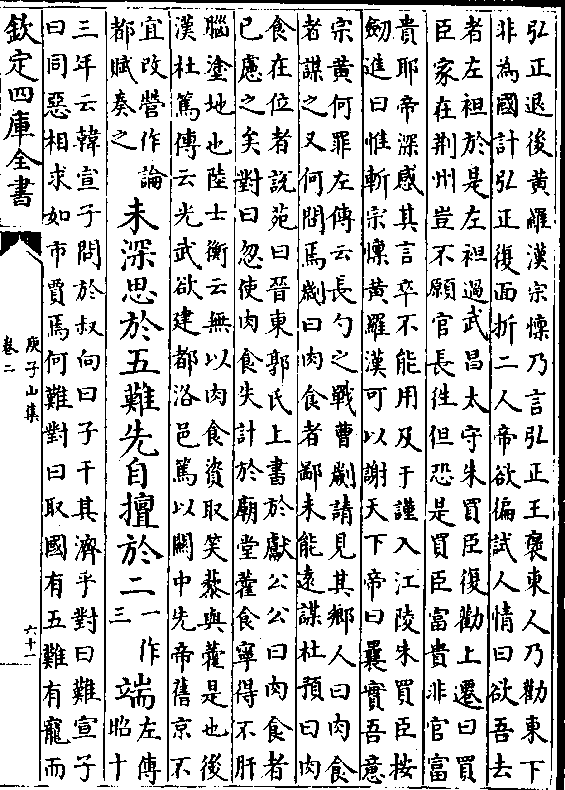 弘正退後黃羅漢宗懍乃言弘正王襃東人乃勸東下
非為國計弘正復面折二人帝欲偏試人情曰欲吾去
者左袒於是左袒過武昌太守朱買臣復勸上遷曰買
臣家在荆州豈不願官長徃但恐是買臣富貴非官富
貴耶帝深感其言卒不能用及于謹入江陵朱買臣按
劒進曰惟斬宗懍黃羅漢可以謝天下帝曰曩實吾意
宗黃何罪左傳云長勺之戰曹劌請見其鄉人曰肉食
者謀之又何問焉劌曰肉食者鄙未能遠謀杜預曰肉
食在位者說苑曰晉東郭氏上書於獻公公曰肉食者
已慮之矣對曰忽使肉食失計於廟堂藿食寧得不肝
腦塗地也陸士衡云無以肉食資取笑藜與藿是也後
漢杜篤傳云光武欲建都洛邑篤以關中先帝舊京不
宜改營作論
都賦奏之
未深思於五難先自擅於二
一作
三
端
左傳
昭十
三年云韓宣子問於叔向曰子干其濟乎對曰難宣子
曰同惡相求如市賈焉何難對曰取國有五難有寵而
欽定四庫全書
庾子山集
卷二
六十一